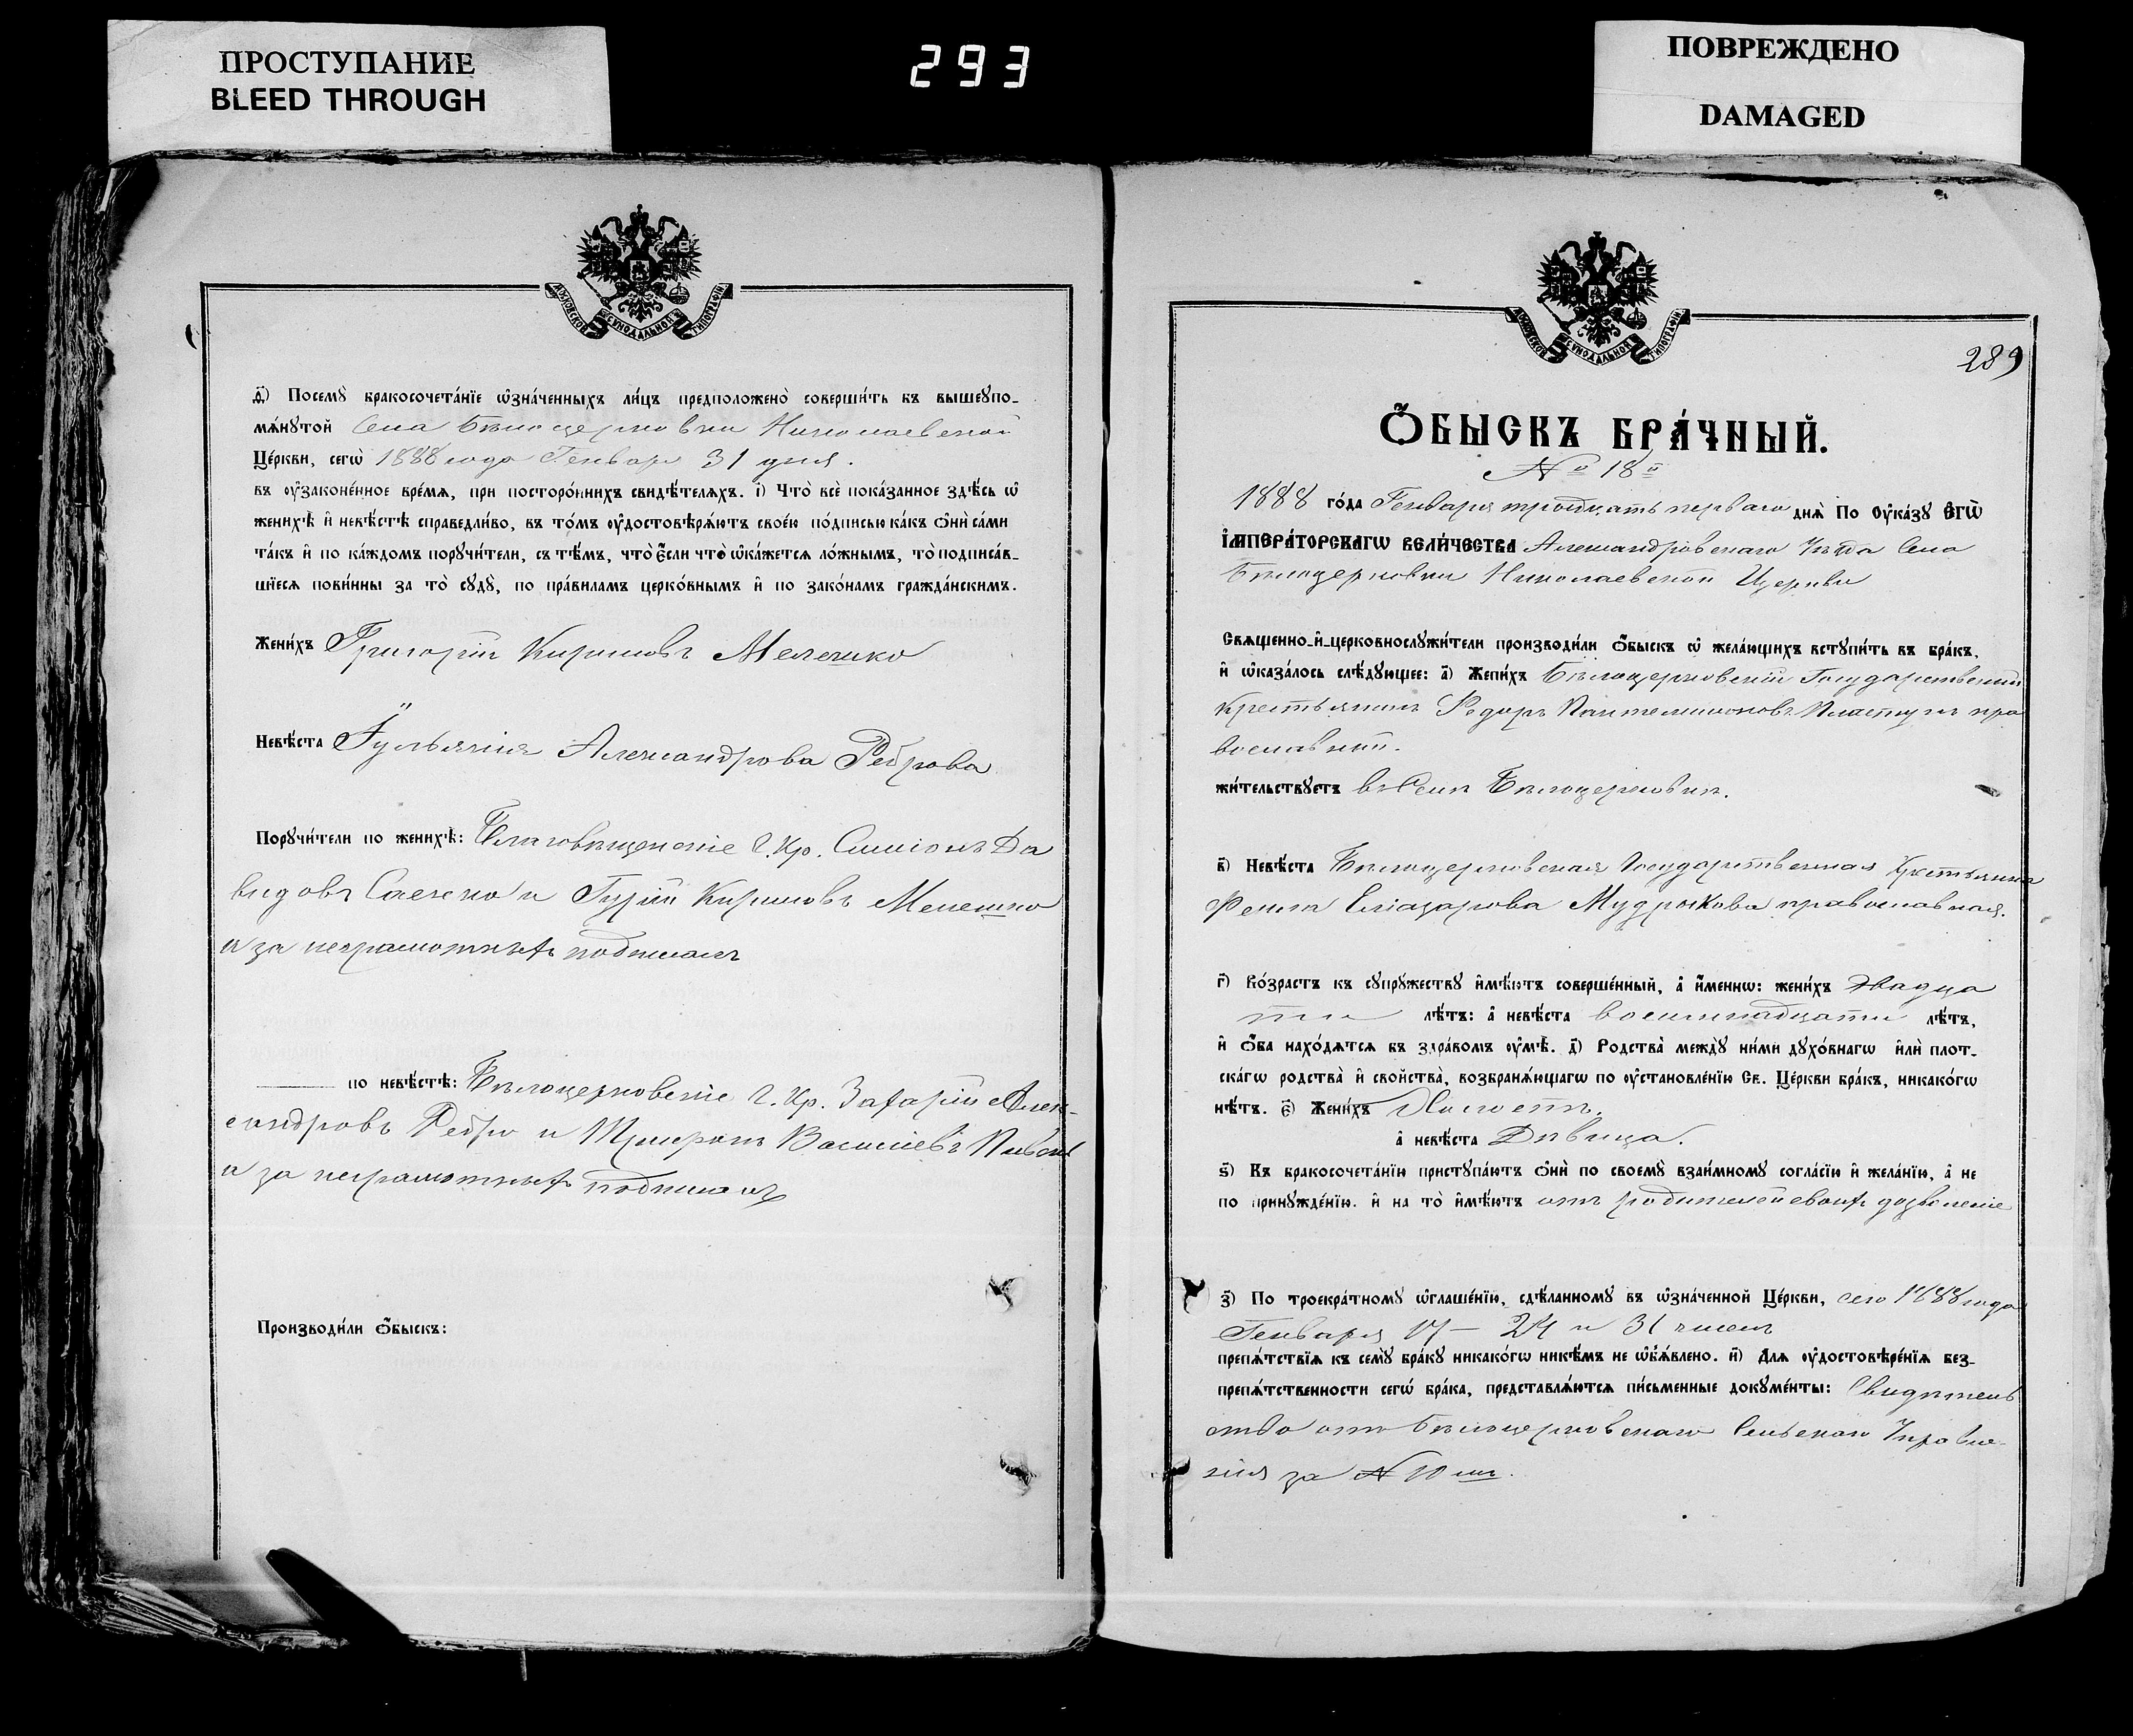 ПРОСТУПАНИЕ
BLEED THROUGH
293
ПОВРЕЖДЕНО
DAMAGED
МОСКОВСКОЙ СУНОДАЛЬНОЙ ТИПОГРАФІИ
д҃) Посемꙋ̀ бракосочета́нїе ѡ҆зна́ченныхъ ли́цъ предположено̀ соверши́ть въ вышеꙋпо-
мѧ́нꙋтой Села Бѣлоцерковки Николаевской
Це́ркви, сегѡ̀ 1888 года Генваря 31 дня.
въ ᲂу҆законе́нное вре́мѧ, при посторо́ннихъ свидѣ́телѧхъ. і҃) Что̀ всѐ пока́занное здѣ́сь ѡ҆
женихѣ̀ и҆ невѣ́стѣ справедли́во, въ то́мъ ᲂу҆достовѣрѧ́ютъ свое́ю по́дписью ка́къ ѻ҆нѝ са́ми
та́къ и҆ по ка́ждомъ порꙋчи́тели, съ тѣ́мъ, что̀ є҆́сли что̀ ѡ҆ка́жетсѧ ло́жнымъ, то̀ подписа́в-
шїесѧ пови́нны за то̀ сꙋдꙋ̀, по пра́виламъ церко́внымъ и҆ по зако́намъ гражда́нскимъ.
Жени́хъ Григорій Кириловъ Мелешко
Невѣ́ста Іульянія Александрова Реброва
Порꙋчи́тели по женихѣ̀: Благовѣщенскіе Г. Кр. Симіонъ Да
видовъ Саенко и Гурій Кириловъ Мелешко
а за неграмотныхъ подписалъ
по невѣ́стѣ: Бѣлоцерковскіе Г. Кр. Захарій Алек-
сандровъ Ребро и Трифонъ Василіевъ Пивень
а за неграмотныхъ подписалъ
Производи́ли ѻ҆́быскъ:
МОСКОВСКОЙ СУНОДАЛЬНОЙ ТИПОГРАФІИ
289
Ѻ҆́БЫСКЪ БРА́ЧНЫЙ.
№ 18
1888 го́да Генваря тридцать перваго днѧ̀ По Ꙋ҆ка́зꙋ Є҆ГѠ̀
І҆МПЕРА́ТОРСКАГѠ ВЕЛИ́ЧЕСТВА Александровскаго Уѣзда Села
Бѣлоцерковки Николаевской Церкви
Свѧще́нно-и҆-церковнослꙋжи́тели производи́ли ѻ҆́быскъ ѡ҆ жела́ющихъ встꙋпи́ть въ бра́къ,
и҆ ѡ҆каза́лось слѣ́дꙋющее: а҃) Жени́хъ Бѣлоцерковскій Государственный
Крестьянинъ Ѳедоръ Пантелимоновъ Пластунъ пра
вославный.
жи́тельствꙋетъ въ Селѣ Бѣлоцерковкѣ.
в҃) Невѣ́ста Бѣлоцерковская Государственная Крестьянка
Фекла Еліазарова Мудрокова православная.
г҃) Во́зрастъ къ сꙋпрꙋ́жествꙋ и҆мѣ́ютъ соверше́нный, а҆ и҆́меннѡ: жени́хъ двадца
ти лѣ́тъ: а҆ невѣ́ста восемнадцати лѣ́тъ,
и҆ ѻ҆́ба нахо́дѧтсѧ въ здра́вомъ ᲂу҆мѣ̀. д҃) Родства̀ междꙋ̀ ни́ми дꙋхо́внагѡ и҆лѝ плот-
ска́гѡ родства̀ и҆ сво́йства, возбранѧ́ющагѡ по ᲂу҆становле́нїю Св. Це́ркви бра́къ, никако́гѡ
нѣ́тъ. є҃) Жени́хъ Холостъ.
а҆ невѣ́ста Дѣвица.
ѕ҃) Къ бракосочета́нїю пристꙋпа́ютъ ѻ҆нѝ по своемꙋ̀ взаи́мномꙋ согла́сїю и҆ жела́нїю, а҆ не
по принꙋжде́нїю. и҆ на то̀ и҆мѣ́ютъ отъ родителей своихъ дозволеніе
з҃) По троекра́тномꙋ ѡ҆глаше́нїю, сдѣ́ланномꙋ въ ѡ҆зна́ченной Це́ркви, сего 1888 года
Генваря 17 – 24 и 31 чиселъ
препѧ́тствїѧ къ семꙋ̀ бра́кꙋ никако́гѡ никѣ́мъ не ѡ҆б̾ѧ́влено. и҃) Для ᲂу҆достовѣре́нїѧ без-
препѧ́тственности сегѡ̀ бра́ка, представлѧ́ютсѧ пи́сьменные докꙋме́нты: Свидѣтель
ство отъ Бѣлоцерковскаго Сельскаго Управле-
нія за № 10 мъ.